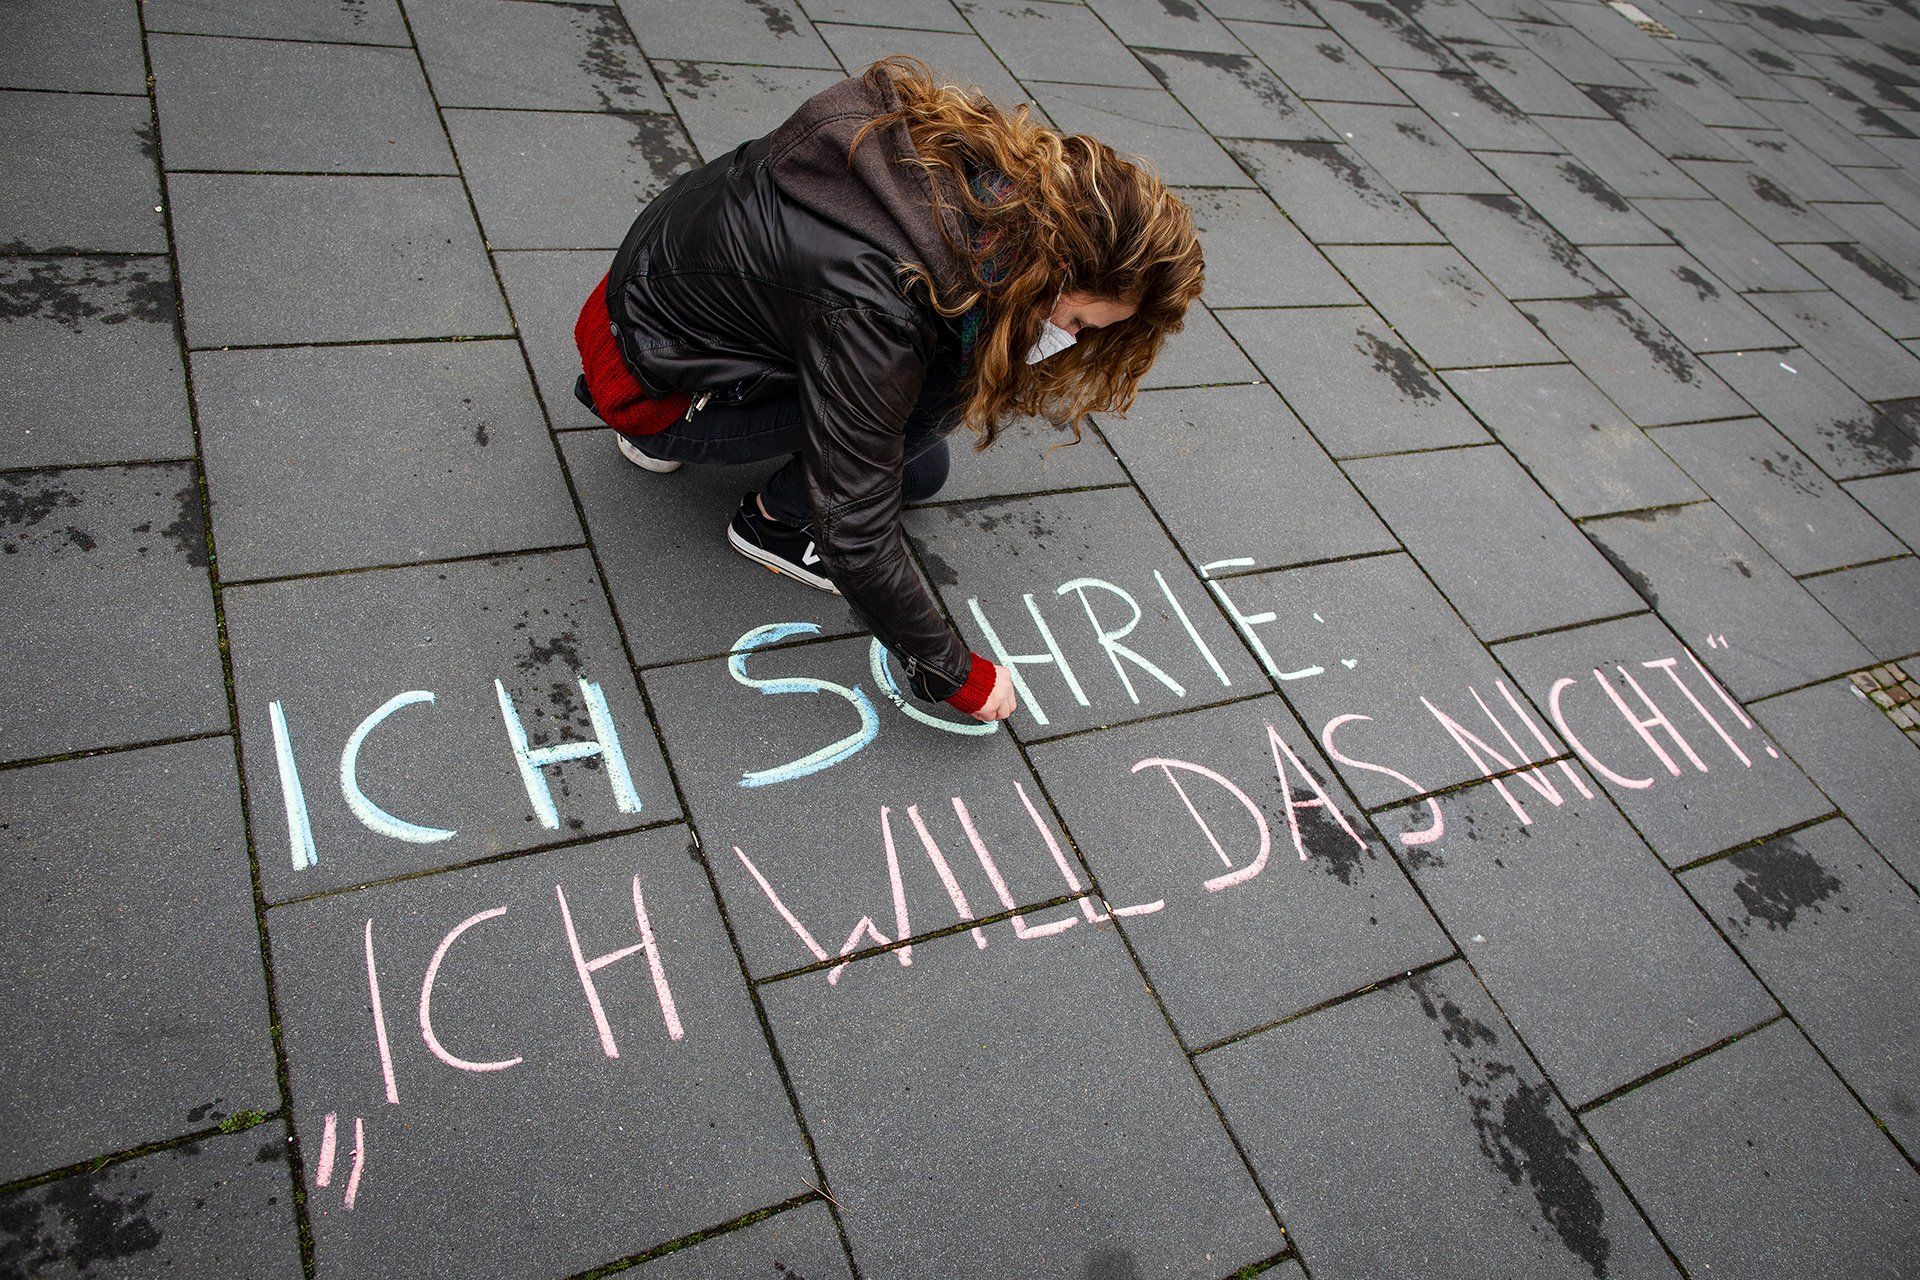 ICH SCHRIE:
„ICH WILL DAS NICHT!“